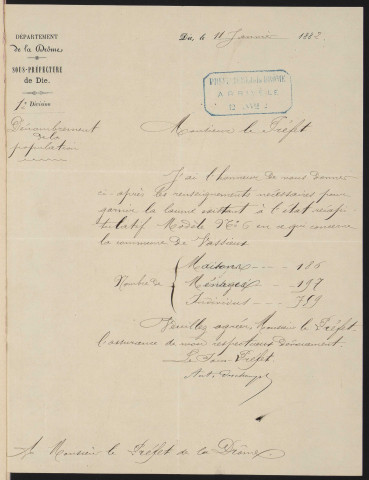 DÉPARTEMENT
de la Drôme
SOUS-PRÉFECTURE
de Die.
1re Division
Dénombrement
de la
population
Die, le 11 Janvier 1882.
PRÉFECTURE DE LA DROME
ARRIVÉE
12 JANV
Monsieur le Préfet
J'ai l'honneur de vous donner
ci-après les renseignements nécessaires pour
garnir la lacune existant à l'état récapi-
tulatif Modèle No 6 en ce que concerne
la commune de Vassieux
Nombre de
Maisons --- 186
Ménages --- 197
Individus --- 759
Veuillez agréer, Monsieur le Préfet,
l'assurance de mon respectueux dévouement.
Le Sous-Préfet
A Monsieur le Préfet de la Drôme.